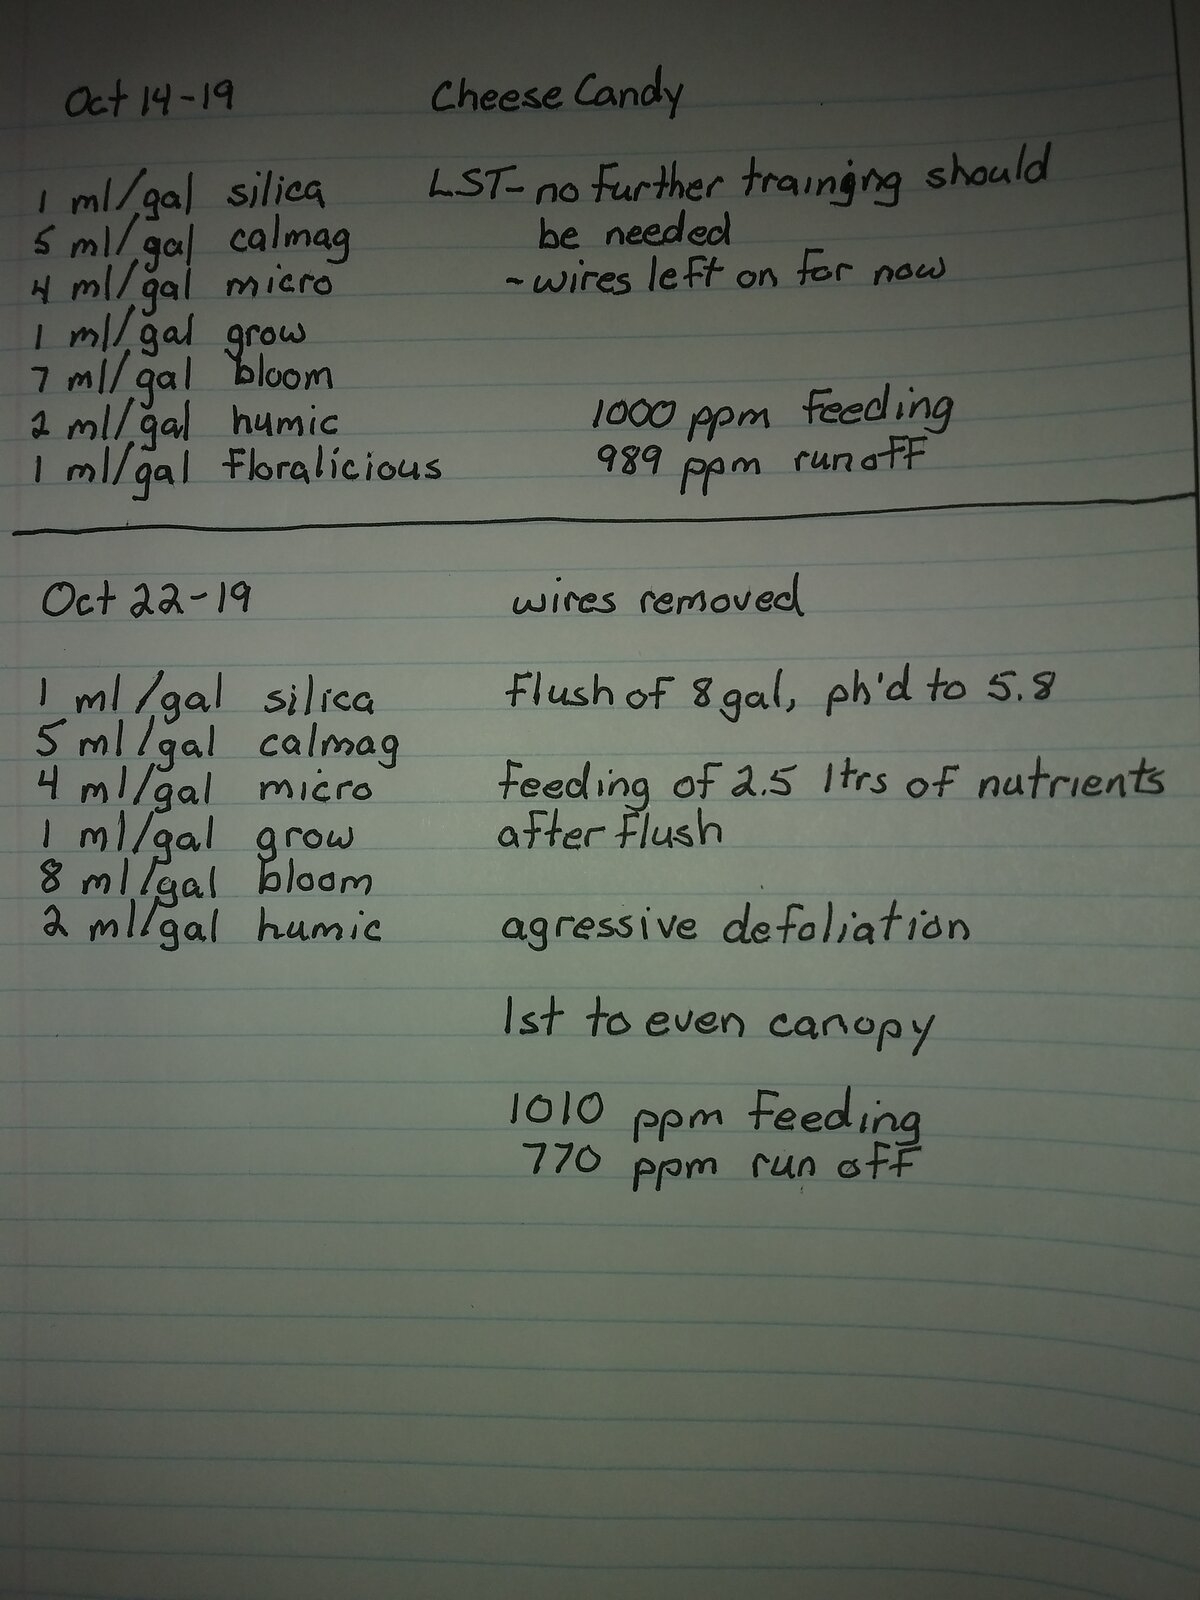 Oct 14-19 Cheese Candy
1 ml/gal silica LST- no further training should
5 ml/gal calmag be needed
4 ml/gal micro -wires left on for now
1 ml/gal grow
7 ml/gal bloom
2 ml/gal humic 1000 ppm feeding
1 ml/gal floralicious 989 ppm runoff
Oct 22-19 wires removed
1 ml/gal silica flush of 8 gal, ph'd to 5.8
5 ml/gal calmag
4 ml/gal micro feeding of 2.5 ltrs of nutrients
1 ml/gal grow after flush
8 ml/gal bloom
2 ml/gal humic agressive defoliation
lst to even canopy
1010 ppm feeding
770 ppm run off